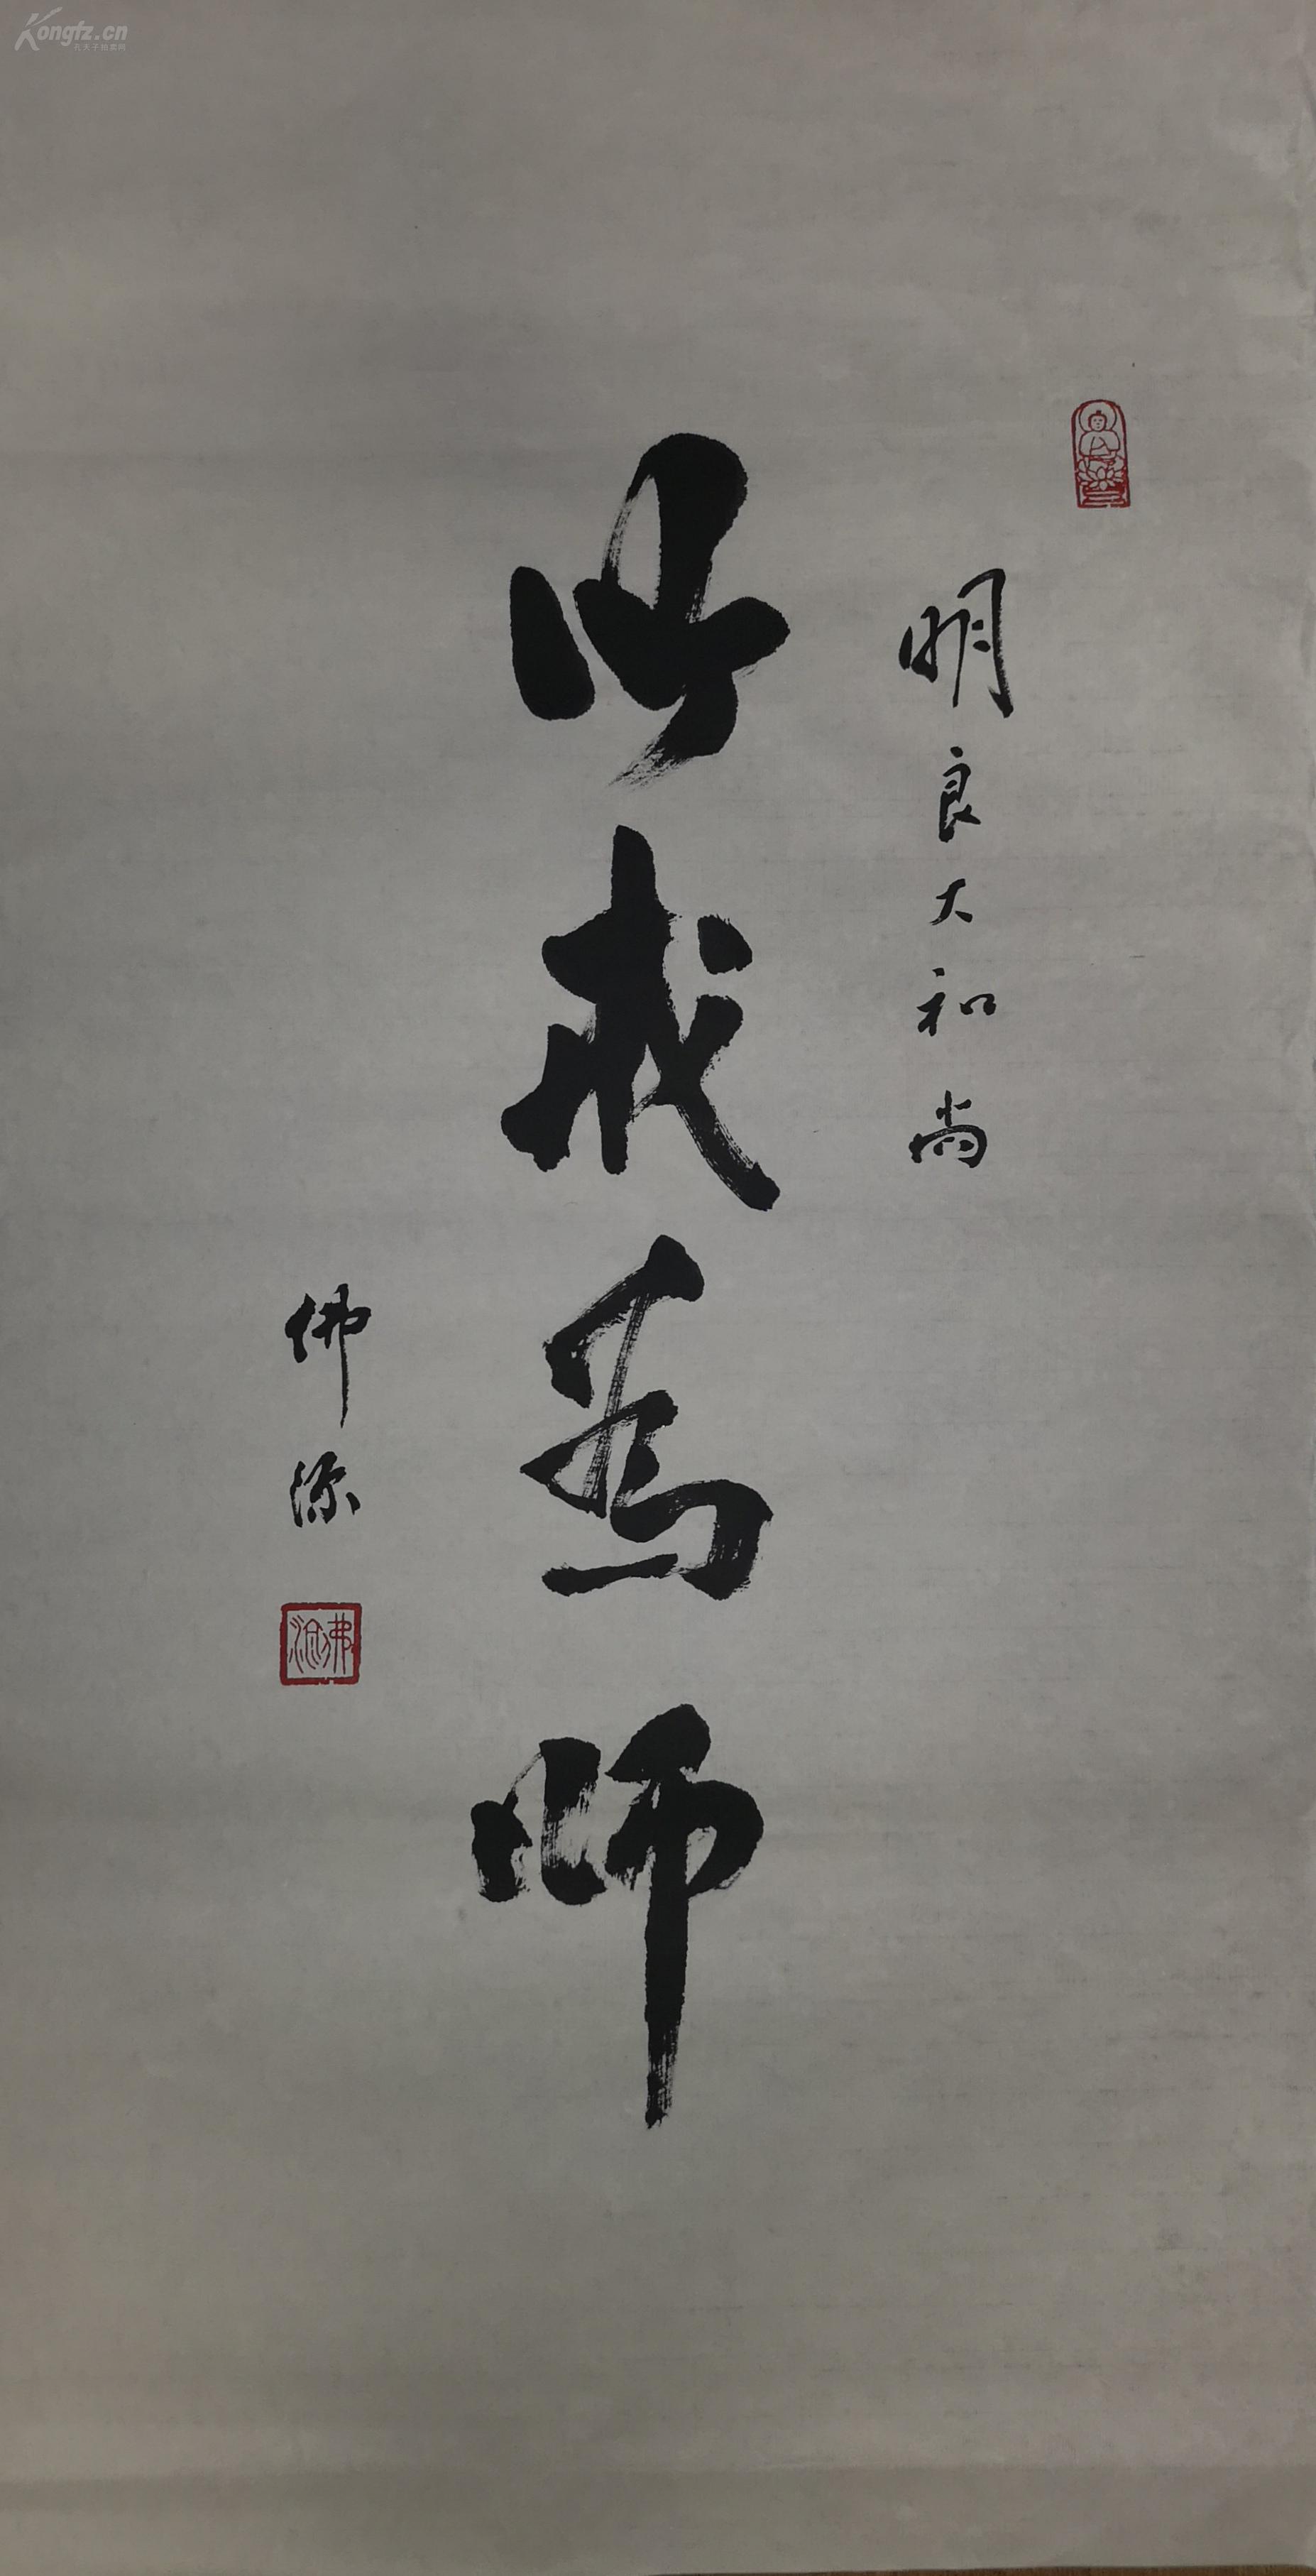 明良大和尚
以戒為师
佛源
佛源
Kongfz.cn
孔夫子拍卖网